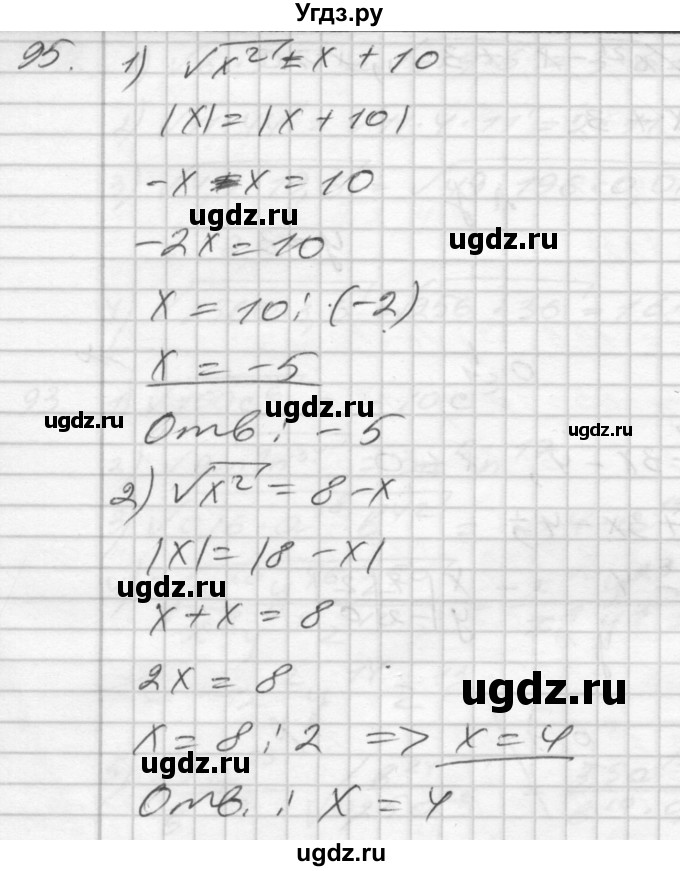 Угдз.ру
95. 1) √x² = x + 10
|x| = |x + 10|
-x - x = 10
ugdz.ru
-2x = 10
ugdz.ru
x = 10 : (-2)
x = -5
ugdz.ru
ugdz.ru
Отв : -5
ugdz.ru
2) √x² = 8 - x
|x| = |8 - x|
ugdz.ru
x + x = 8
2x = 8
ugdz.ru
x = 8 : 2 => x = 4
ugdz.ru
Отв. : x = 4
ugdz.ru